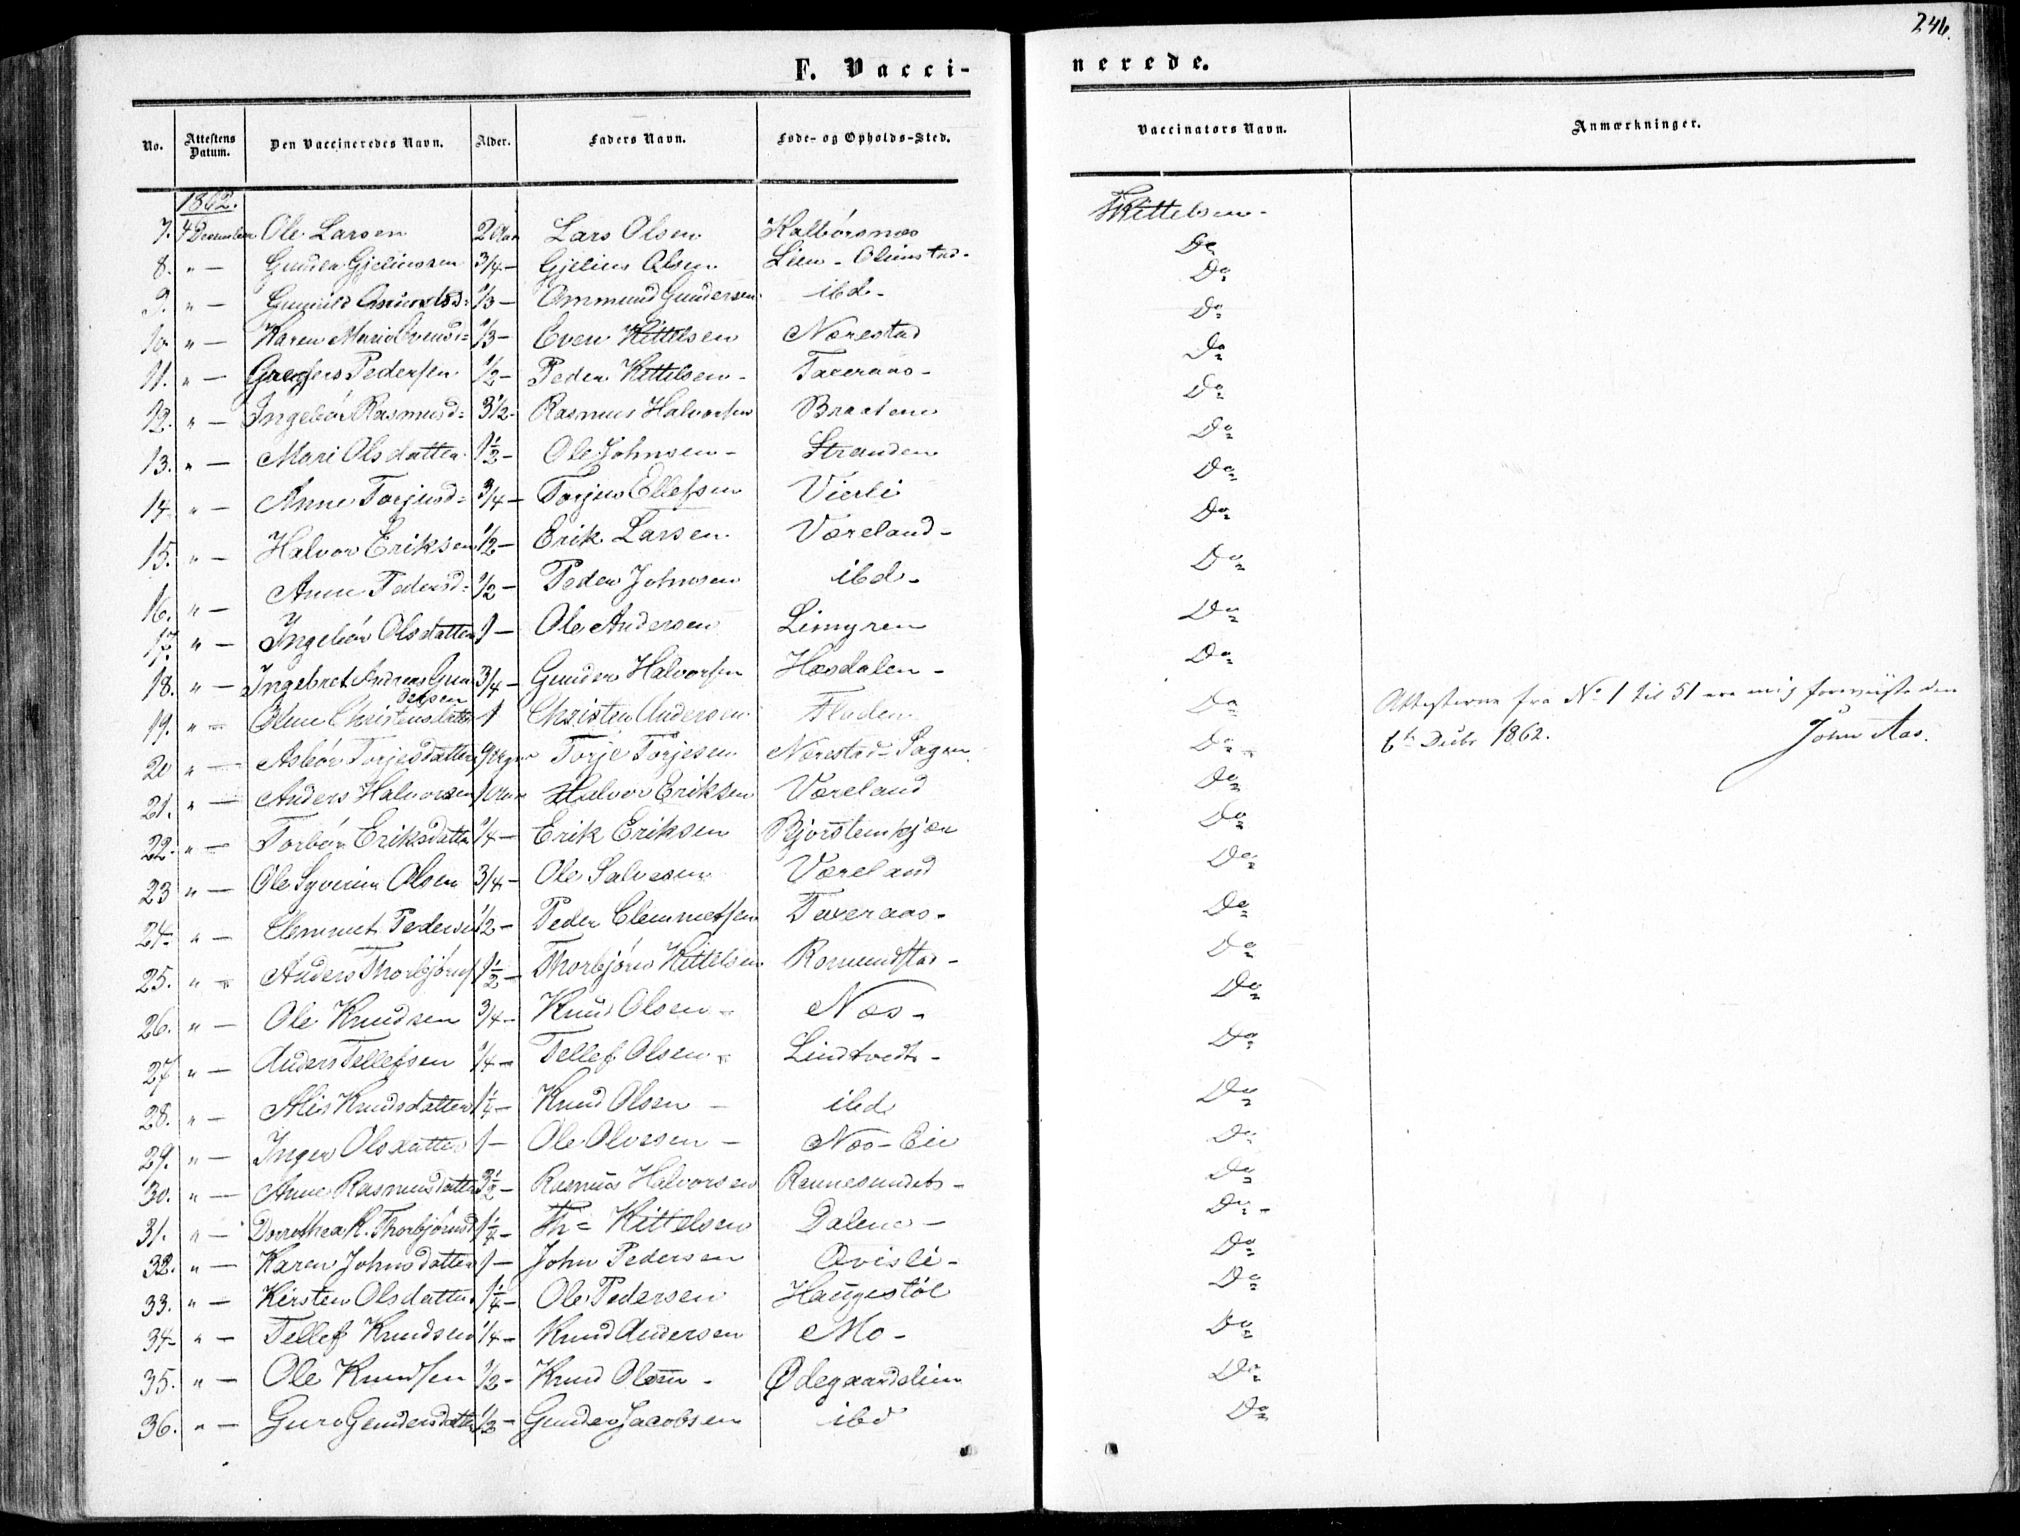 246.
F. Vacci-
nerede.
No. Attestens Datum. Den Vaccineredes Navn. Alder. Faders Navn. Føde- og Opholds-Sted. Vaccinators Navn. Anmærkninger.
1862.
7. 4 December Ole Larsen 2 Aar Lars Olsen Kalbørsnæs Kittelsen-
8. " — Gunder Gjelinssen 3/4 — Gjelius Olsen Lien - Olimstad- Do
9. " — Gunild Omundsd: 1/3 — Ommund Gundersen ibd- Do
10. " — Karen Marie Evensd= 1/3 — Even Kittelsen Nærestad Do
11. " — Gregers Pedersen 1/2 — Peder Kittelsen- Taxeraas- Do
12. " — Ingebór Rasmusd= 3 1/2 - Rasmus Halvorsen Braatene Do
13. " — Mari Olsdatter 1 1/2 - Ole Johnsen- Stranden Do
14. " — Anne Torjusd= 3/4 — Torjus Ellefsen Vierli Do
15. " — Halvor Eriksen 1/2 — Erik Larsen Væreland- Do
16. " — Anne Pedersd= 1/2 — Peder Johnsen ibd- Do
17. " — Ingebór Olsdatter 1 — Ole Andersen Limyren Do
18. " — Ingebret Andreas Gundersen 3/4 — Gunder Halvorsen Hæsdalen- Do
19. " — Oline Christensdatter 1 Christen Andersen Floden Do
20 " — Asbór Torjesdatter 9 Uger Torje Torjesen Nærestad-Sagen Do
Attesterne fra No 1 til 51 ere mig foreviiste den
6te Decbr 1862. John Aas.
21. " — Anders Halvorsen 1 Aar Halvor Eriksen Væreland Do
22. " — Torbór Eriksdatter 1/4 — Erik Eriksen Bjorstemkjær Do
23 " — Ole Syverin Olsen 3/4 — Ole Salvesen Væreland Do
24. " — Clemmet Pedersen 1/2 — Peder Clemmetsen Taxeraas- Do
25. " — Anders Thorbjørns 1 1/2 — Thorbjørn Kittelsen Romundstad- Do
26. " — Ole Knudsen 3/4 — Knud Olsen- Næs- Do
27 " — Anders Tellefsen 1/4 — Tellef Olsen- Lindtvedt- Do
28. " — Alis Knudsdatter 1 1/4 — Knud Olsen — ibd Do
29. " — Inger Olsdatter 1 — Ole Olvesen — Næs-Eie Do
30. " — Anne Rasmusdatter 3 1/2 — Rasmus Halvorsen Rennesundets- Do
31. " — Dorrothea K. Thorbjørnsd 1 1/4 — Th= Kittelsen Dalene- Do
32. " — Karen Johnsdatter 1 — John Pedersen Qvisli- Do
33. " — Kirsten Olsdatter 1 1/4 — Ole Pedersen Haugestól Do
34 " — Tellef Knudsen 1/4 — Knud Andersen Mo- Do
35. " — Ole Knudsen 1/2 - Knud Olsen - Ødegaardslien Do
36. " — Guro Gundersdatter 1/2 — Gunder Jacobsen ibd Do